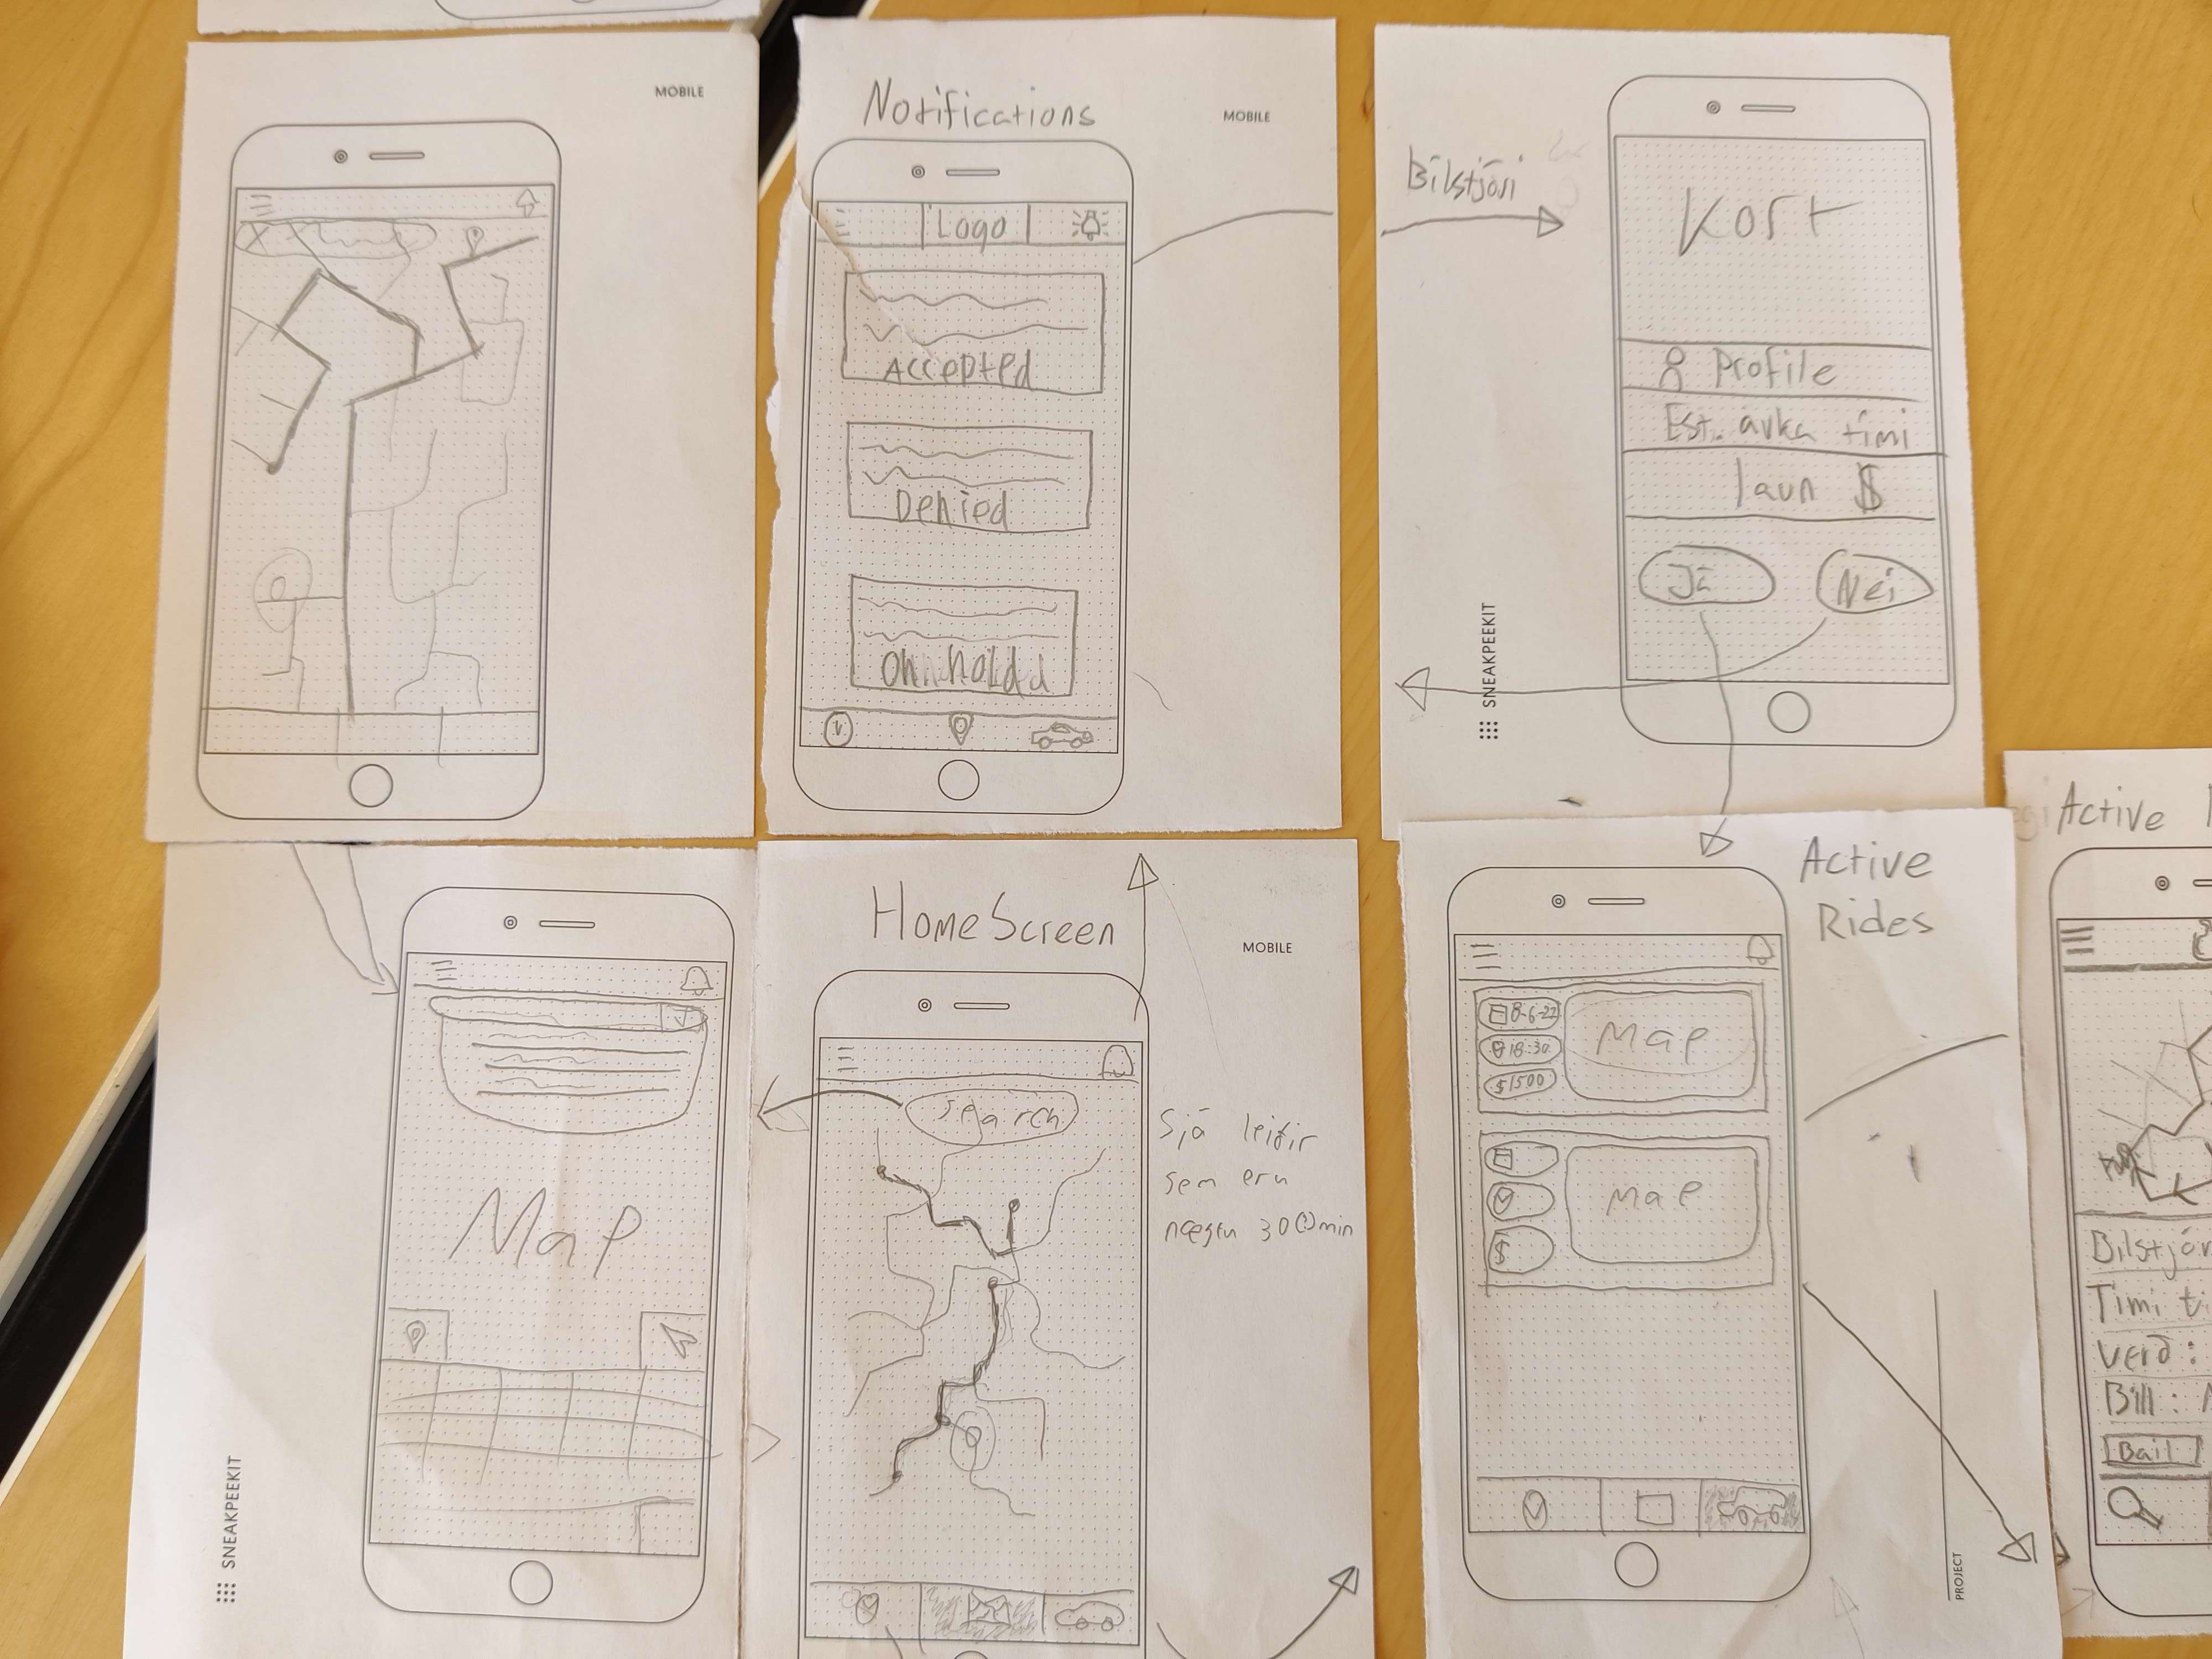 MOBILE
Notifications
MOBILE
Logo
Accepted
Denied
On hold
Bílstjóri
Kort
Profile
Est. auka tími
laun $
Já
Nei
SNEAKPEEKIT
Map
SNEAKPEEKIT
HomeScreen
MOBILE
search
Sjá leiðir
sem eru
nægu 30 min
Active
Rides
8-6-22
18:30
$1500
Map
Map
$
PROJECT
Active
Bílstjór
Tími ti
Verð:
Bíll:
Bail